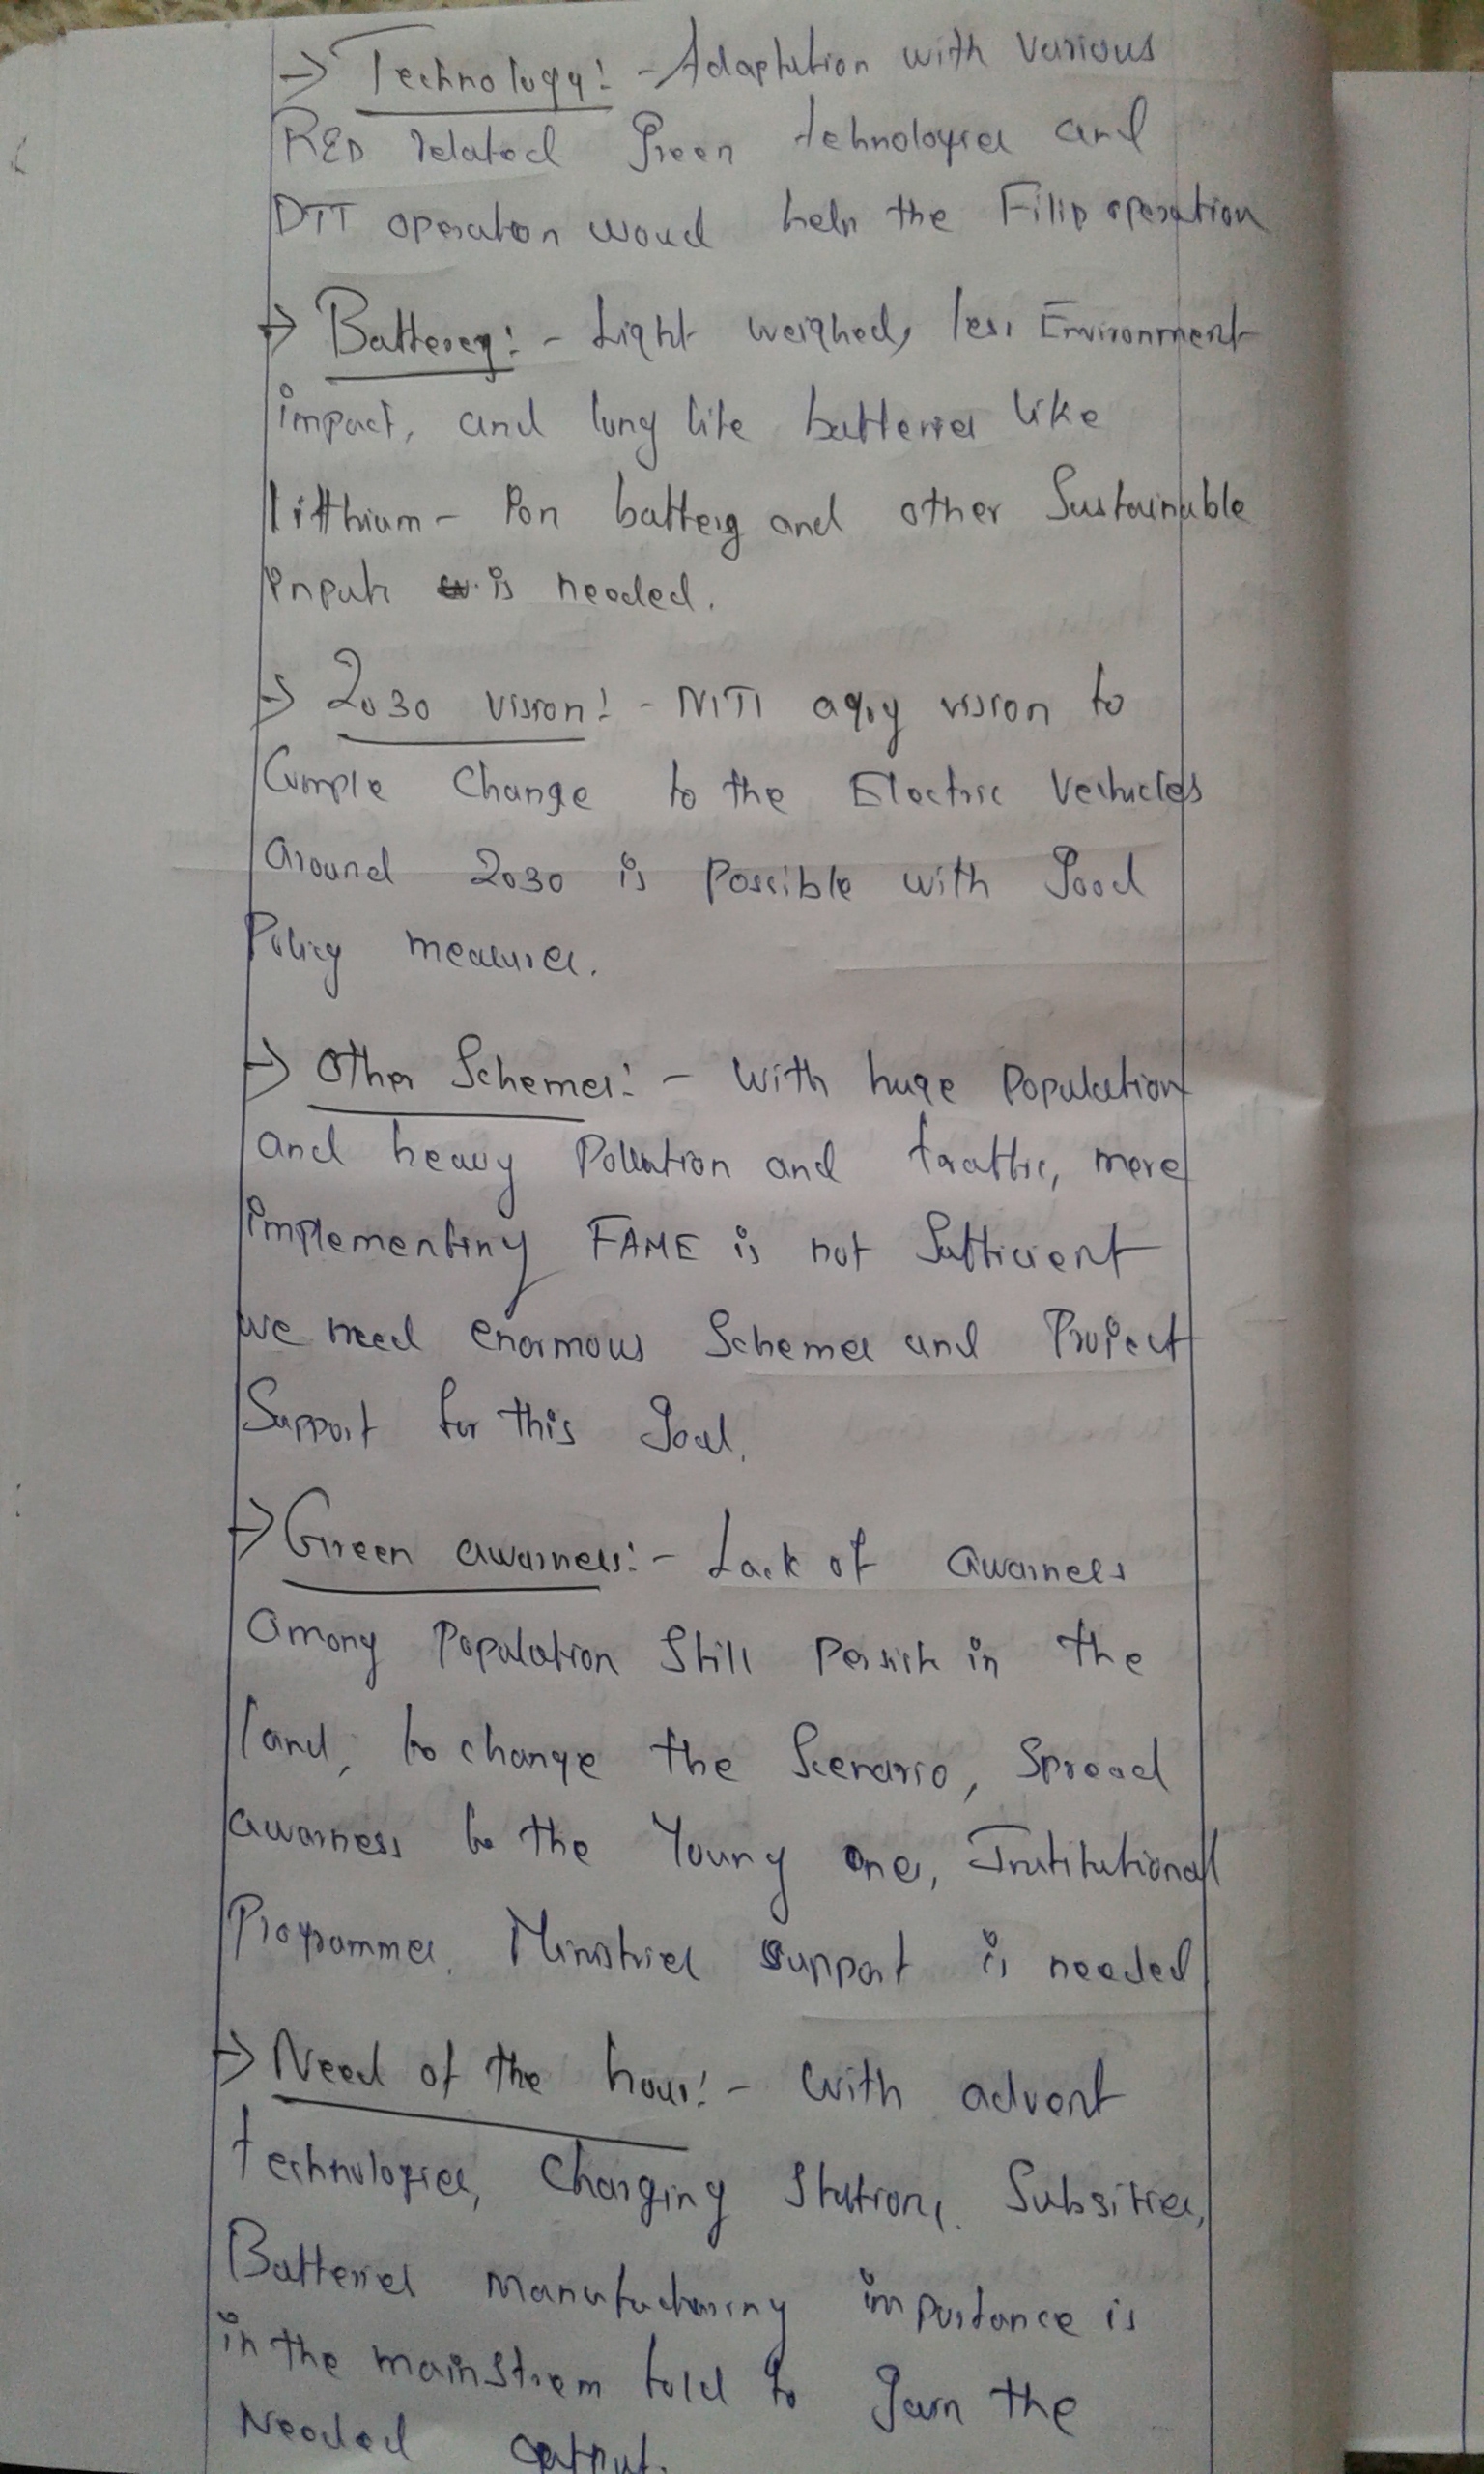 → Technology! - Adaptation with various
R&D related Green tehnologies and
DTT operation woud help the Filip operation
→ Battery! - Light weighed, less Environment
impact, and long life batteries like
litthium - Ion battery and other Sustainable
inputs is needed.
→ 2030 vision! - NITI ayog vision to
Comple Change to the Electric Vechicles
around 2030 is Possible with Good
Policy measures.
→ Other Schemes! - With huge Population
and heavy Pollution and traffic, mere
implementing FAME is not Sufficient
we need enormous Schemes and Project
Support for this Goal.
→ Green awarness! - Lack of awarness
among Population Still Persists in the
land, to change the Scenario, Spread
awarness to the Young ones, Institutional
Programmes, Ministries support is needed.
→ Need of the hour! - With advent
technologies, Charging Stations, Subsities,
Batteries manufacturing importance is
in the mainstrem told to Gain the
Needed output.